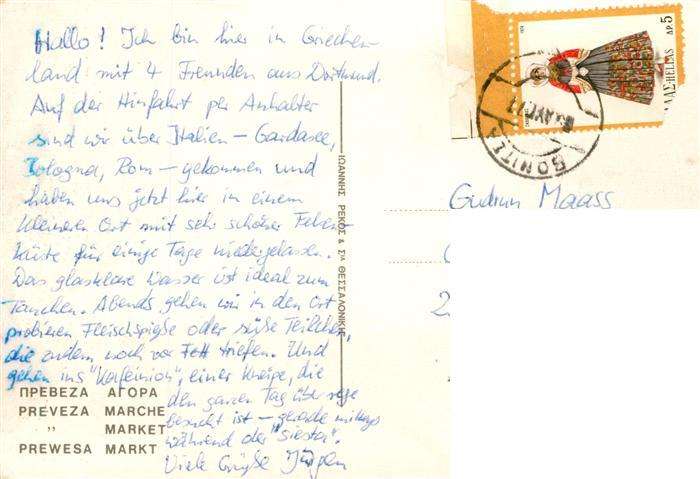 Hallo! Ich bin hier in Griechen-
land mit 4 Freunden aus Dortmund.
Auf der Hinfahrt per Anhalter
sind wir über Italien – Gardasee,
Bologna, Rom – gekommen und
haben uns jetzt hier in einem
kleineren Ort mit sehr schöner Felsen-
küste für einige Tage niedergelassen.
Das glasklare Wasser ist ideal zum
Tauchen. Abends gehen wir in den Ort
probieren Fleischspieße oder süße Teilchen,
die zudem noch vor Fett triefen. Und
gehen ins "Kafeinion", einer Kneipe, die
den ganzen Tag über rege
besucht ist – gerade mittags
während der "Siesta".
Viele Grüße Jürgen
ΠΡΕΒΕΖΑ ΑΓΟΡΑ
PREVEZA MARCHE
" MARKET
PREWESA MARKT
ΙΩΑΝΝΗΣ ΡΕΚΟΣ & Σια ΘΕΣΣΑΛΟΝΙΚΗΣ
ΛΑΣ-HELLAS ΔΡ.5
BONITS
Gudrun Maass
2